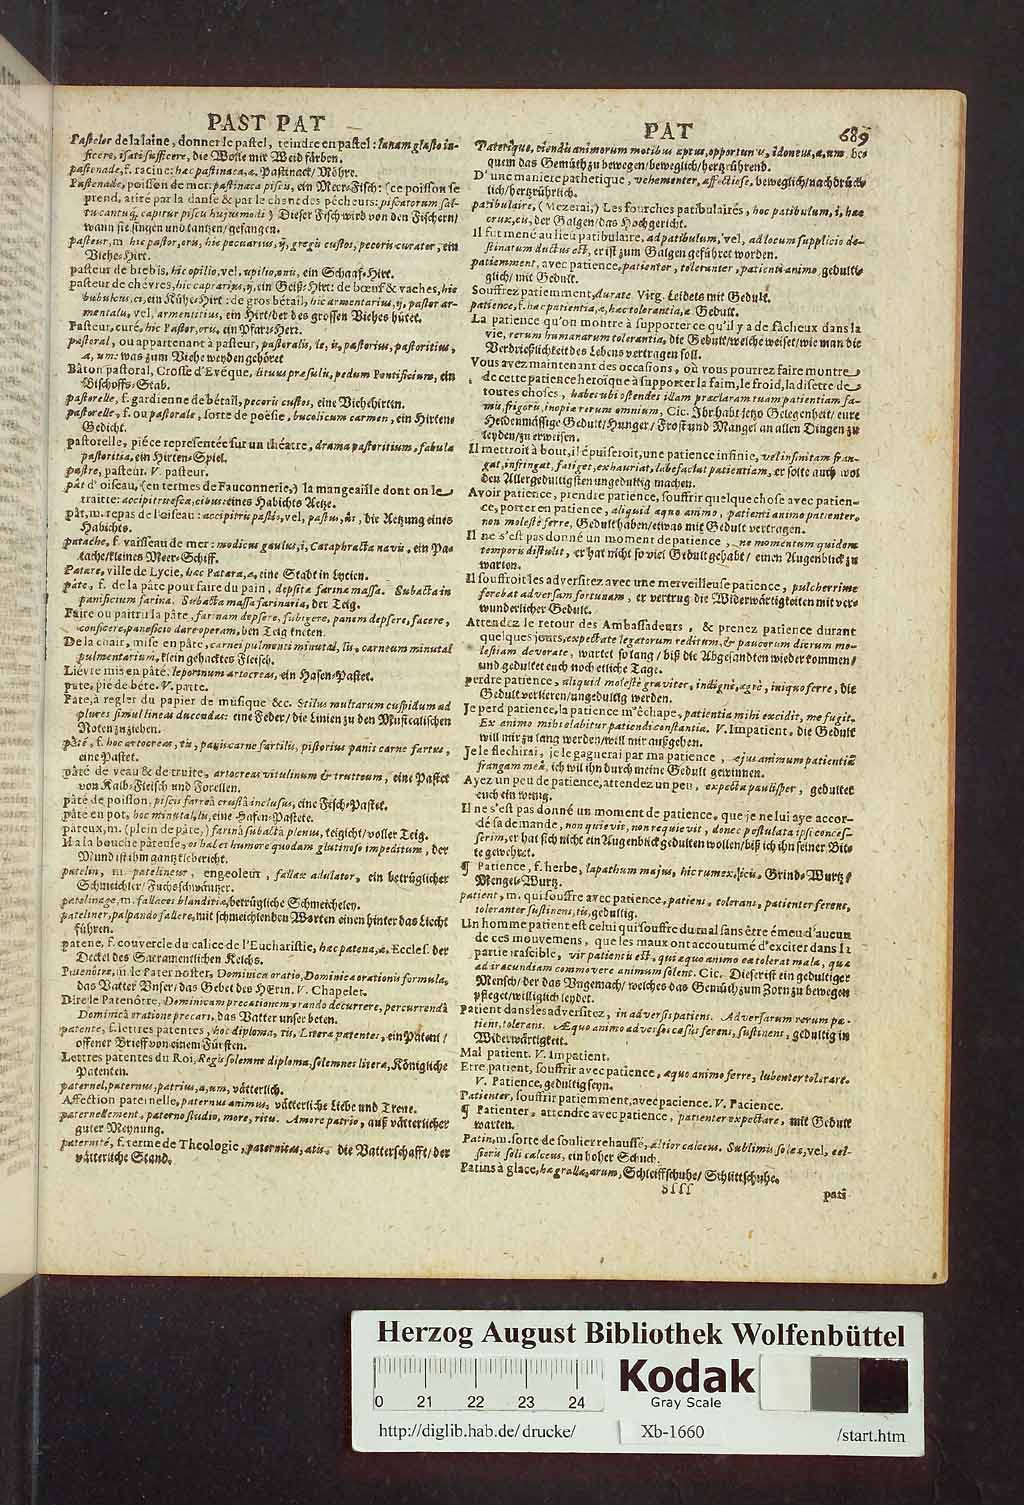 PAST PAT
Pasteler de la laine, donner le pastel, teindre en pastel: lanam glasto in-
ficere, isati sufficere, die Wolle mit Weid färben.
pastenade, f. racine: hac pastinaca, a, Pastinack/ Möhre.
Pastenade, poisson de mer: pastinaca piscis, ein Meer-Fisch: (ce poisson se
prend, atiré par la danse & par le chant des pécheurs: piscatorum sal-
tu cantuq; capitur piscis hujusmodi) Dieser Fisch wird von den Fischern/
wann sie singen und tantzen/ gefangen.
pasteur, m. hic pastor, oris, hic pecuarius, ij, gregis custos, pecoris curator, ein
Viehe-Hirt.
pasteur de brebis, hic opilio, vel, upilio, onis, ein Schaaf-Hirt.
pasteur de chévres, hic caprarius, ij, ein Geiß-Hirt: de bœuf & vaches, hic
bubulcus, ci, ein Kühe-Hirt: de gros bétail, hic armentarius, ij, pastor ar-
mentalis, vel, armentitius, ein Hirt/ der des grossen Viehes hütet.
Pasteur, curé, hic Pastor, oris, ein Pfarr-Herr.
pastoral, ou appartenant à pasteur, pastoralis, le, is, pastorius, pastoritius,
a, um: was zum Viehe weyden gehöret
Bâton pastoral, Crosse d'Evéque, lituus præsulis, pedum Pontificium, ein
Bischoffs-Stab.
pastorelle, f. gardienne de bétail, pecoris custos, eine Viehehirtin.
pastorelle, f. ou pastorale, sorte de poësie, bucolicum carmen, ein Hirten-
Gedicht.
pastorelle, piéce representée sur un théatre, drama pastoritium, fabula
pastoritia, ein Hirten-Spiel.
pastre, pasteur. V. pasteur.
pât d'oiseau, (en termes de Fauconnerie,) la mangeaille dont on le
traitte: accipitris esca, cibus: eines Habichts Aetze.
pât, m. repas de l'oiseau: accipitris pastio, vel, pastus, ûs, die Aetzung eines
Habichts.
patache, f. vaisseau de mer: modicus gaulus, i, Cataphracta navis, ein Pa-
tache/ kleines Meer-Schiff.
Patare, ville de Lycie, hac Patara, a, eine Stadt in Lycien.
pâte, f. de la pâte pour faire du pain, depsita farina massa. Subacta in
panificium farina. Subacta massa farinaria, der Teig.
Faire ou paitrir la pâte, farinam depsere, subigere, panem depsere, facere,
conficere, paneficio dare operam, den Teig kneten.
De la chair, mise en pâte, carnei pulmenti minutal, lis, carneum minutal
pulmentarium, klein gehacktes Fleisch.
Liévre mis en pâté, leporinum artocreas, ein Hasen-Pastet.
pate, pié de béte. V. patte.
Pate, à regler du papier de musique &c. Stilus multarum cuspidum ad
plures simul lineas ducendas: eine Feder/ die Linien zu den Musicalischen
Noten zu ziehen.
pâté, f. hoc artocreas, tis, panis carne fartilis, pistorius panis carne fartus,
eine Pastet.
pâté de veau & de truite, artocreas vitulinum & trutteum, eine Pastet
von Kalb-Fleisch und Forellen.
pâté de poisson, piscis farreâ crustâ inclusus, eine Fisch-Pastet.
pâté en pot, hoc minutal, lis, eine Hafen-Pastete.
pâteux, m. (plein de pâte,) farinâ subactâ plenus, teigicht/ voller Teig.
Il a la bouche pâteuse, os habet humore quodam glutinoso impeditum, der
Mund ist ihm gantz klebericht.
patelin, m. patelineur, engeoleur, fallax adulator, ein betrüglicher
Schmeichler/ Fuchsschwäntzer.
patelinage, m. fallaces blanditia, betrügliche Schmeicheley.
pateliner, palpando fallere, mit schmeichlenden Worten einen hinter das Liecht
führen.
patene, f. couvercle du calice de l'Eucharistie, hac patena, a. Eccles. der
Deckel des Sacramentlichen Kelchs.
Patenôtre, m. le Pater noster, Dominica oratio, Dominica orationis formula,
das Vatter Unser/ das Gebet des HErrn. V. Chapelet.
Dire le Patenôtre, Dominicam precationem orando decurrere, percurrendâ
Dominicâ oratione precari, das Vatter unser beten.
patente, f. lettres patentes, hoc diploma, tis, Litera patentes, ein Patent/
offener Brieff von einem Fürsten.
Lettres patentes du Roi, Regis solemne diploma, solemnes litera, Königliche
Patenten.
paternel, paternus, patrius, a, um, vätterlich.
Affection paternelle, paternus animus, vätterliche Liebe und Treue.
paternellement, paterno studio, more, ritu. Amore patrio, auß vätterlicher
guter Meynung.
paternité, f. terme de Theologie, paternitas, atis, die Vatterschafft/ der
vätterliche Stand.
PAT
689
Patetique, ciendis animorum motibus aptus, opportunus, idoneus, a, um, be-
quem das Gemüth zu bewegen/ beweglich/ hertzrührend.
D'une maniere pathetique, vehementer, affectiose, beweglich/ nachdrück-
lich/ hertzrührlich.
patibulaire, (Mezerai,) Les fourches patibulaires, hoc patibulum, i, hac
crux, cis, der Galgen/ das Hochgericht.
Il fut mené au lieu patibulaire, ad patibulum, vel, ad locum supplicio de-
stinatum ductus est, er ist zum Galgen geführet worden.
patiemment, avec patience, patienter, toleranter, patienti animo, gedultig-
lich/ mit Gedult.
Souffrez patiemment, durate Virg. Leidets mit Gedult.
patience, f. hac patientia, a, hac tolerantia, a Gedult.
La patience qu'on montre à supporter ce qu'il y a de fâcheux dans la
vie, rerum humanarum tolerantia, die Gedult/ welche weiset/ wie man die
Verdrießlichkeit des Lebens vertragen soll.
Vous avez maintenant des occasions, où vous pourrez faire montre
de cette patience heroïque à supporter la faim, le froid, la disette de
toutes choses, habes ubi ostendes illam praclaram tuam patientiam fa-
mis, frigoris, inopia rerum omnium, Cic. Ihr habt jetzo Gelegenheit/ eure
Heldenmässige Gedult/ Hunger/ Frost und Mangel an allen Dingen zu
leyden/ zu erweisen.
Il mettroit à bout, il épuiseroit, une patience infinie, vel infinitam fran-
gat, infringat, fatiget, exhauriat, labefactat patientiam, er solte auch wol
den Allergedultigsten ungedultig machen.
Avoir patience, prendre patience, souffrir quelque chose avec patien-
ce, porter en patience, aliquid aquo animo, patienti animo patienter,
non moleste ferre, Gedult haben/ etwas mit Gedult vertragen.
Il ne s'est pas donné un moment de patience, ne momentum quidem
temporis distulit, er hat nicht so viel Gedult gehabt/ einen Augenblick zu
warten.
Il souffroit les adversitez avec une merveilleuse patience, pulcherrime
ferebat adversam fortunam, er vertrug die Widerwärtigkeiten mit ver-
wunderlicher Gedult.
Attendez le retour des Ambassadeurs, & prenez patience durant
quelques jours, expectate legatorum reditum, & paucorum dierum mo-
lestiam devorate, wartet so lang/ biß die Abgesandten wieder kommen/
und gedultet euch noch etliche Tage.
perdre patience, aliquid molestè graviter, indignè, agrè, iniquo ferre, die
Gedult verlieren/ ungedultig werden.
Je perd patience, la patience m'échape, patientia mihi excidit, me fugit.
Ex animo mihi elabitur patiendi constantia. V. Impatient, die Gedult
will mir zu lang werden/ will mir außgehen.
Je le flechirai, je le gagnerai par ma patience, ejus animum patientiâ
frangam meâ, ich wil ihn durch meine Gedult gewinnen.
Ayez un peu de patience, attendez un peu, expecta paulisper, gedultet
euch ein wenig.
Il ne s'est pas donné un moment de patience, que je ne lui aye accor-
dé sa demande, non quievit, non requievit, donec postulata ipsi conces-
serim, er hat sich nicht ein Augenblick gedulten wollen/ biß ich ihn seiner Bit-
te gewehret.
¶ Patience, f. herbe, lapathum majus, hic rumex, icis, Grind-Wurtz/
Mengel-Wurtz.
patient, m. qui souffre avec patience, patiens, tolerans, patienter ferens,
toleranter sustinens, tis, gedultig.
Un homme patient est celui qui souffre du mal sans être émeu d'aucun
de ces mouvemens, que les maux ont accoutumé d'exciter dans la
partie irascible, vir patientis est, qui æquo animo ea tolerat mala, qua
ad iracundiam commovere animum solent. Cic. Dieser ist ein gedultiger
Mensch/ der das Ungemach/ welches das Gemüth zum Zorn zu bewegen
pfleget/ williglich leydet.
Patient dans les adversitez, in adversis patiens. Adversarum rerum pa-
tiens, tolerans. Æquo animo adversos casus ferens, sustinens, gedultig in
Widerwärtigkeit.
Mal patient. V. Impatient.
Etre patient, souffrir avec patience, æquo animo ferre, lubenter tolerare.
V. Patience, gedultig seyn.
Patienter, souffrir patiemment, avec pacience. V. Pacience.
¶ Patienter, attendre avec patience, patienter expectare, mit Gedult
warten.
Patin, m. sorte de soulier rehaussé, altior calceus. Sublimis solea, vel, cel-
sioris soli calceus, ein hoher Schuch.
Patins à glace, ha gralla, arum, Schleiffschuhe/ Schlittschuhe.
Ssss
patis
Herzog August Bibliothek Wolfenbüttel
0 21 22 23 24
Kodak
Gray Scale
http://diglib.hab.de/drucke/
Xb-1660
/start.htm